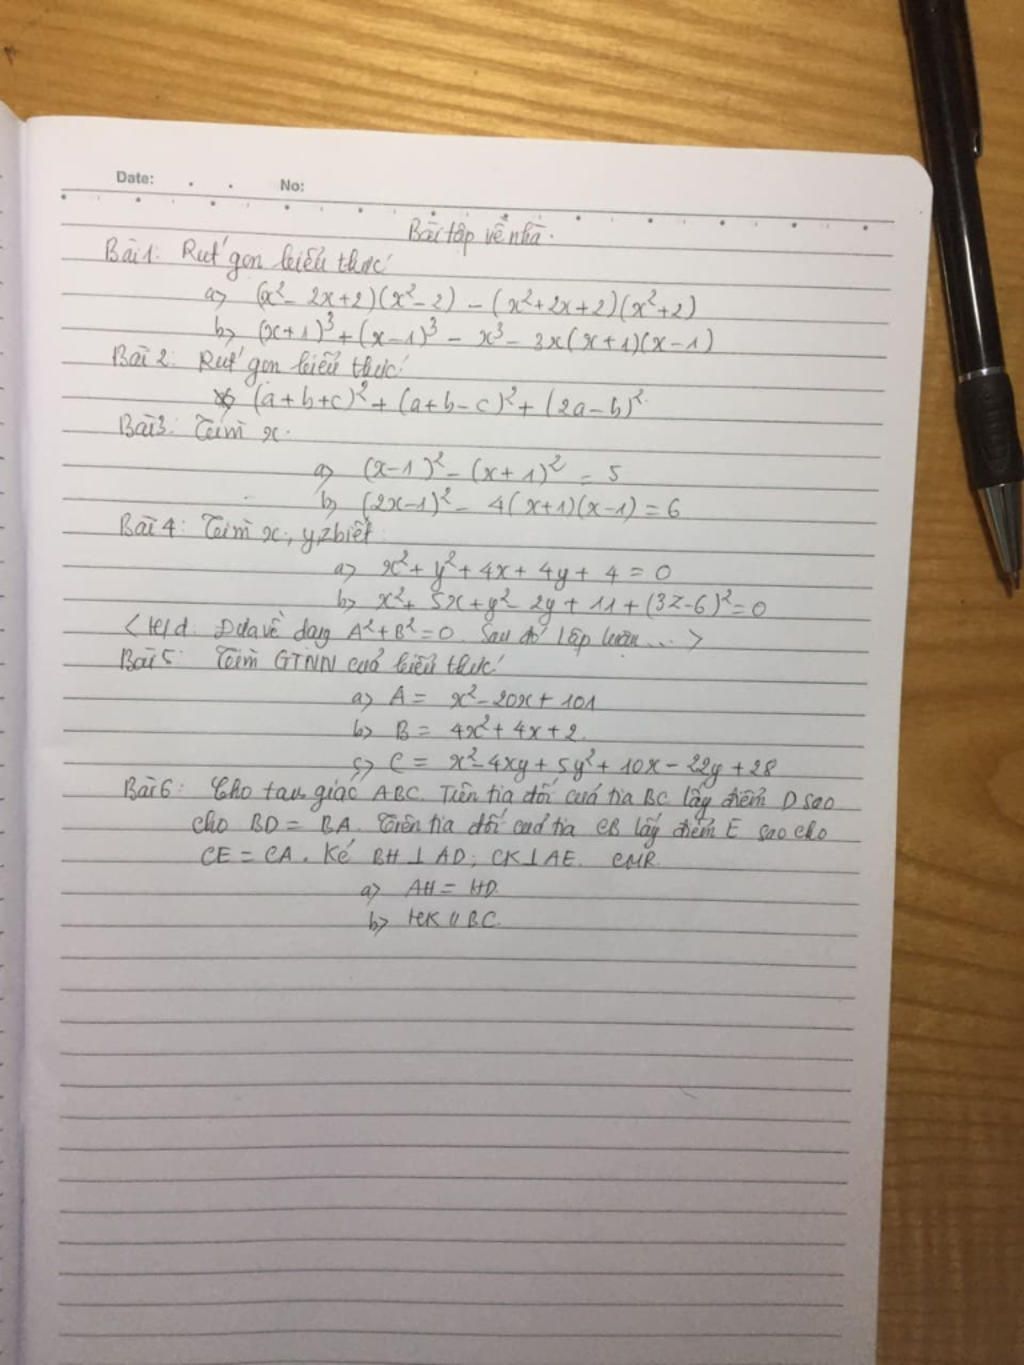 Date: No:
Bài tập về nhà.
Bài 1: Rút gọn biểu thức
a> (x² - 2x+2)(x²-2) - (x²+2x+2)(x²+2)
b> (x+1)³+(x-1)³ - x³ - 3x(x+1)(x-1)
Bài 2: Rút gọn biểu thức
(a+b+c)²+(a+b-c)²+(2a-b)²
Bài 3: Tìm x.
a> (x-1)² - (x+1)² = 5
b> (2x-1)² - 4(x+1)(x-1) = 6
Bài 4: Tìm x, y, z biết
a> x²+ y²+ 4x+ 4y+ 4 = 0
b> x²+ 5x+y²- 2y+ 11+(3z-6)²=0
<H/d: Đưa về dạng A²+B²=0. Sau đó lập luận...>
Bài 5: Tìm GTNN của biểu thức
a> A = x²-20x+ 101
b> B = 4x²+ 4x+2.
c> C = x²-4xy+ 5y²+ 10x- 22y +28
Bài 6: Cho tam giác ABC. Trên tia đối của tia BC lấy điểm D sao
cho BD = BA. Trên tia đối của tia CB lấy điểm E sao cho
CE = CA. Kẻ BH ⊥ AD; CK ⊥ AE. CMR
a> AH = HD
b> HK // BC.